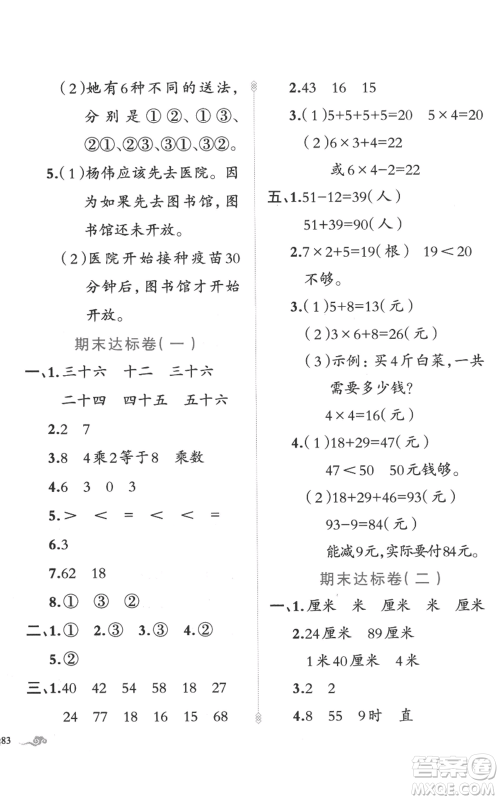 (2)她有6种不同的送法,
分别是①①、①③、
②①、②③、③①、③③。
5.(1)杨伟应该先去医院。因
为如果先去图书馆,图书
馆还未开放。
(2)医院开始接种疫苗30
分钟后,图书馆才开始
开放。
期末达标卷(一)
一、1.三十六 十二 三十六
二十四 四十四 二十四
2.2 7
3.8 4乘2等于8 乘数
4.6 3 0 3
5.> < = < = <
6.3
7.62 18
8.① ③ ②
二、1.① 2.② 3.③ 4.②
5.②
三、1.40 54 58 18 27
24 77 77 18 68
83
2.43 16 15
3.(1)5+5+5+5=20 5×4=20
(2)6×3+4=22
或6×4-2=22
五、1.51-12=39(人)
51+39=90(人)
2.7×2+5=19(根) 19<20
不够。
3.(1)5+8=13(元)
(2)2×3=6(元)
(3)示例:买4斤白菜,一共
需要多少钱?
4×4=16(元)
4.(1)18+29=47(元)
47<50 50元钱够。
(2)18+29+46=93(元)
93-9=84(元)
能减9元,实际要付84元。
期末达标卷(二)
一、1.厘米 米 厘米 米 厘米
2.24厘米 89厘米
1米30厘米 4厘米
3.2 2
4.8 55 9时 直
答案圈
MXQE.COM